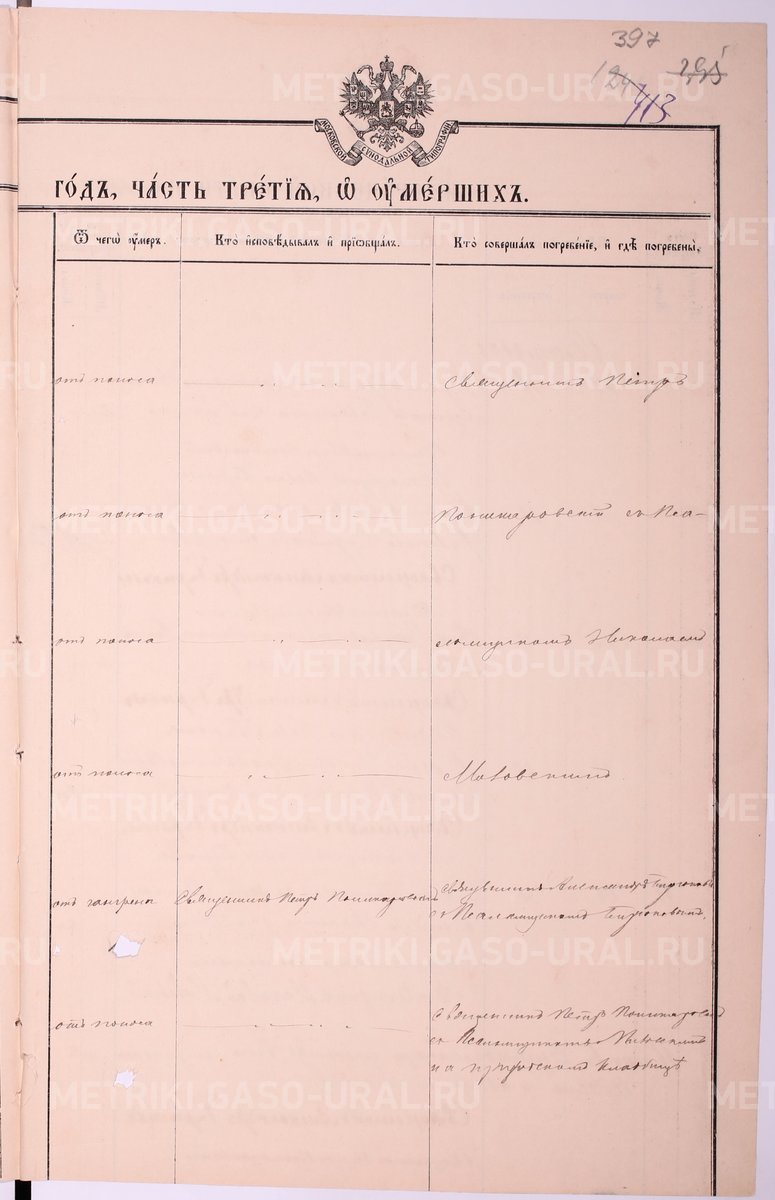 397
295
124
713
МОСКОВСКОЙ СѴНОДАЛЬНОЙ ТИПОГРАФІИ
ГО́ДЪ, ЧА́СТЬ ТРЕ́ТІѦ, Ѡ҆ ОУ҆МЕ́РШИХЪ.
Ѿ чегѡ̀ оу҆́меръ.
Кто̀ и҆сповѣ́дывалъ и҆ прїѡбща́лъ.
Кто̀ соверша́лъ погребе́нїе, и҆ гдѣ̀ погребены̀.
отъ поноса
Священникъ Петръ
отъ поноса
съ Пса-
отъ поноса
ломщикомъ Николаемъ
отъ поноса
отъ гангрена
Священникъ Петръ
Священникъ Александръ
съ Псаломщикомъ
отъ поноса
Священникъ Петръ
съ Псаломщикомъ
на приходскомъ кладбищѣ
METRIKI.GASO-URAL.RU